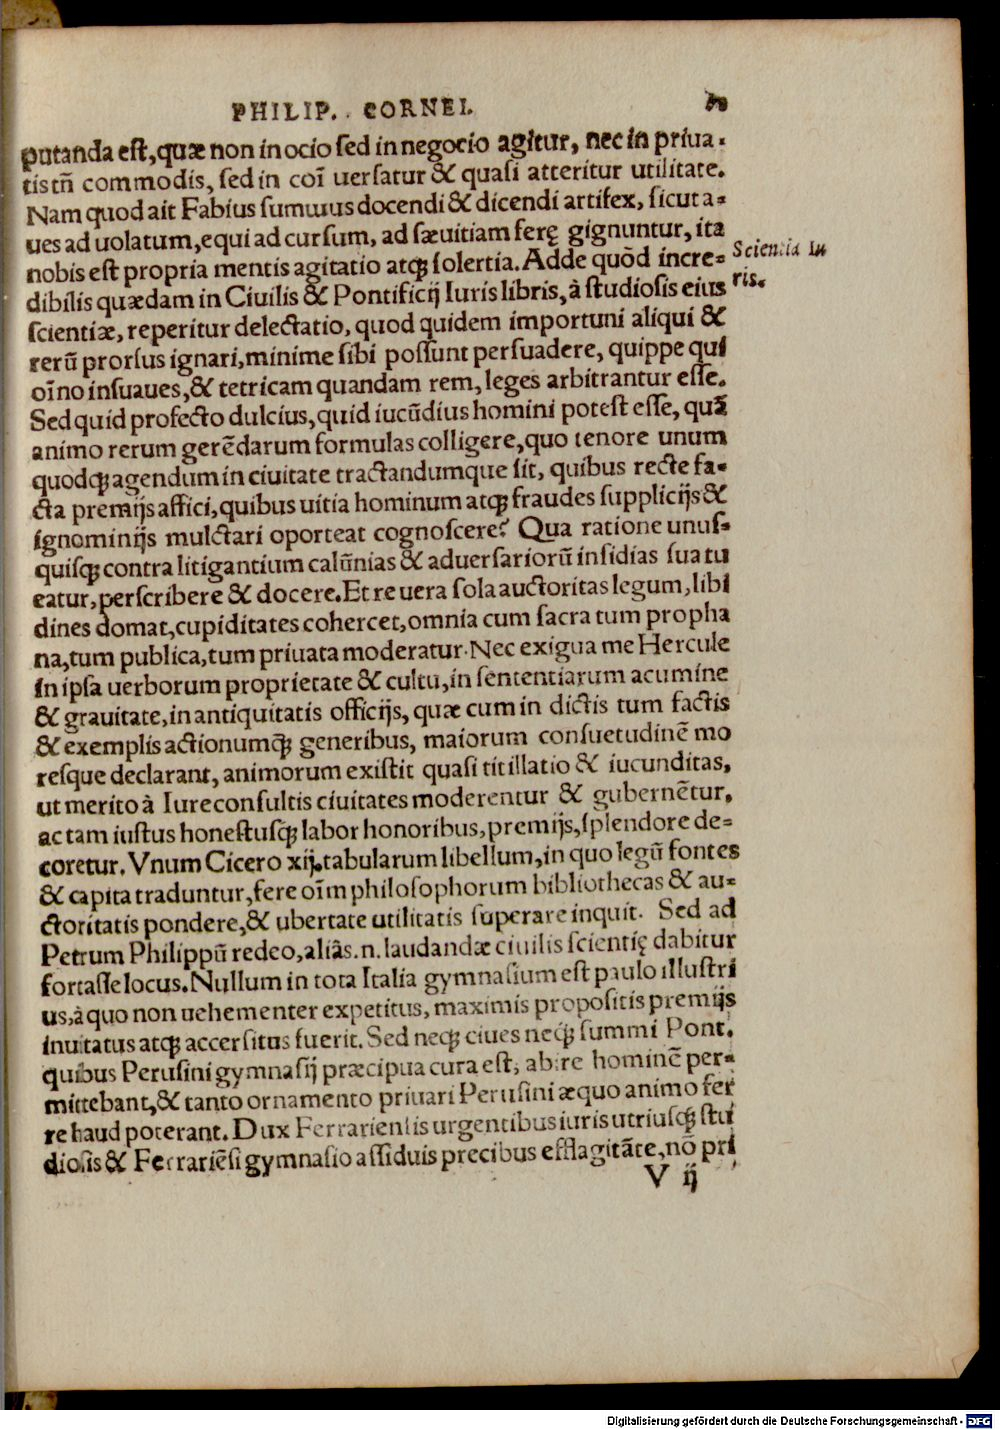 PHILIP. CORNEI.
putanda est, quæ non in ocio sed in negocio agitur, nec in priua-
tis tñ commodis, sed in coī uersatur & quasi atteritur utilitate.
Nam quod ait Fabius summus docendi & dicendi artifex, sicut a-
ues ad uolatum, equi ad cursum, ad sæuitiam ferę gignuntur, ita
nobis est propria mentis agitatio atqꝫ solertia. Adde quōd incre-
Scientia Iu
ris.
dibilis quædam in Ciuilis & Pontificij Iuris libris, à studiosis eius
scientiæ, reperitur delectatio, quod quidem importuni aliqui &
rerū prorsus ignari, minime sibi possunt persuadere, quippe qui
oīno insuaues, & tetricam quandam rem, leges arbitrantur esse.
Sed quid profecto dulcius, quid iucūdius homini potest esse, quā
animo rerum gerēdarum formulas colligere, quo tenore unum
quodqꝫ agendum in ciuitate tractandumque sit, quibus recte fa-
cta premijs affici, quibus uitia hominum atqꝫ fraudes supplicijs &
ignominijs mulctari oporteat cognoscere? Qua ratione unus-
quisqꝫ contra litigantium calūnias & aduersariorū insidias sua tu
eatur, perscribere & docere. Et re uera sola auctoritas legum, libi
dines domat, cupiditates cohercet, omnia cum sacra tum propha
na, tum publica, tum priuata moderatur. Nec exigua me Hercule
in ipsa uerborum proprietate & cultu, in sententiarum acumine
& grauitate, in antiquitatis officijs, quæ cum in dictis tum factis
& exemplis actionumqꝫ generibus, maiorum consuetudinē mo
resque declarant, animorum existit quasi titillatio & iucunditas,
ut merito à Iureconsultis ciuitates moderentur & gubernētur,
ac tam iustus honestusqꝫ labor honoribus, premijs, splendore de-
coretur. Vnum Cicero xij. tabularum libellum, in quo legū fontes
& capita traduntur, fere oīm philosophorum bibliothecas & au-
ctoritatis pondere, & ubertate utilitatis superare inquit. Sed ad
Petrum Philippū redeo, aliâs .n. laudandæ ciuilis scientię dabitur
fortasse locus. Nullum in tota Italia gymnasium est paulo illustri
us, à quo non uehementer expetitus, maximis propositis premijs
inuitatus atqꝫ accersitus fuerit. Sed neqꝫ ciues neqꝫ summi Pont.
quibus Perusini gymnasij præcipua cura est, abire hominē per-
mittebant, & tanto ornamento priuari Perusini æquo animo fer
re haud poterant. Dux Ferrariensis urgentibus iuris utriusqꝫ stu
diosis & Ferrariēsi gymnasio assiduis precibus efflagitāte, nō pri
V ij
Digitalisierung gefördert durch die Deutsche Forschungsgemeinschaft - DFG